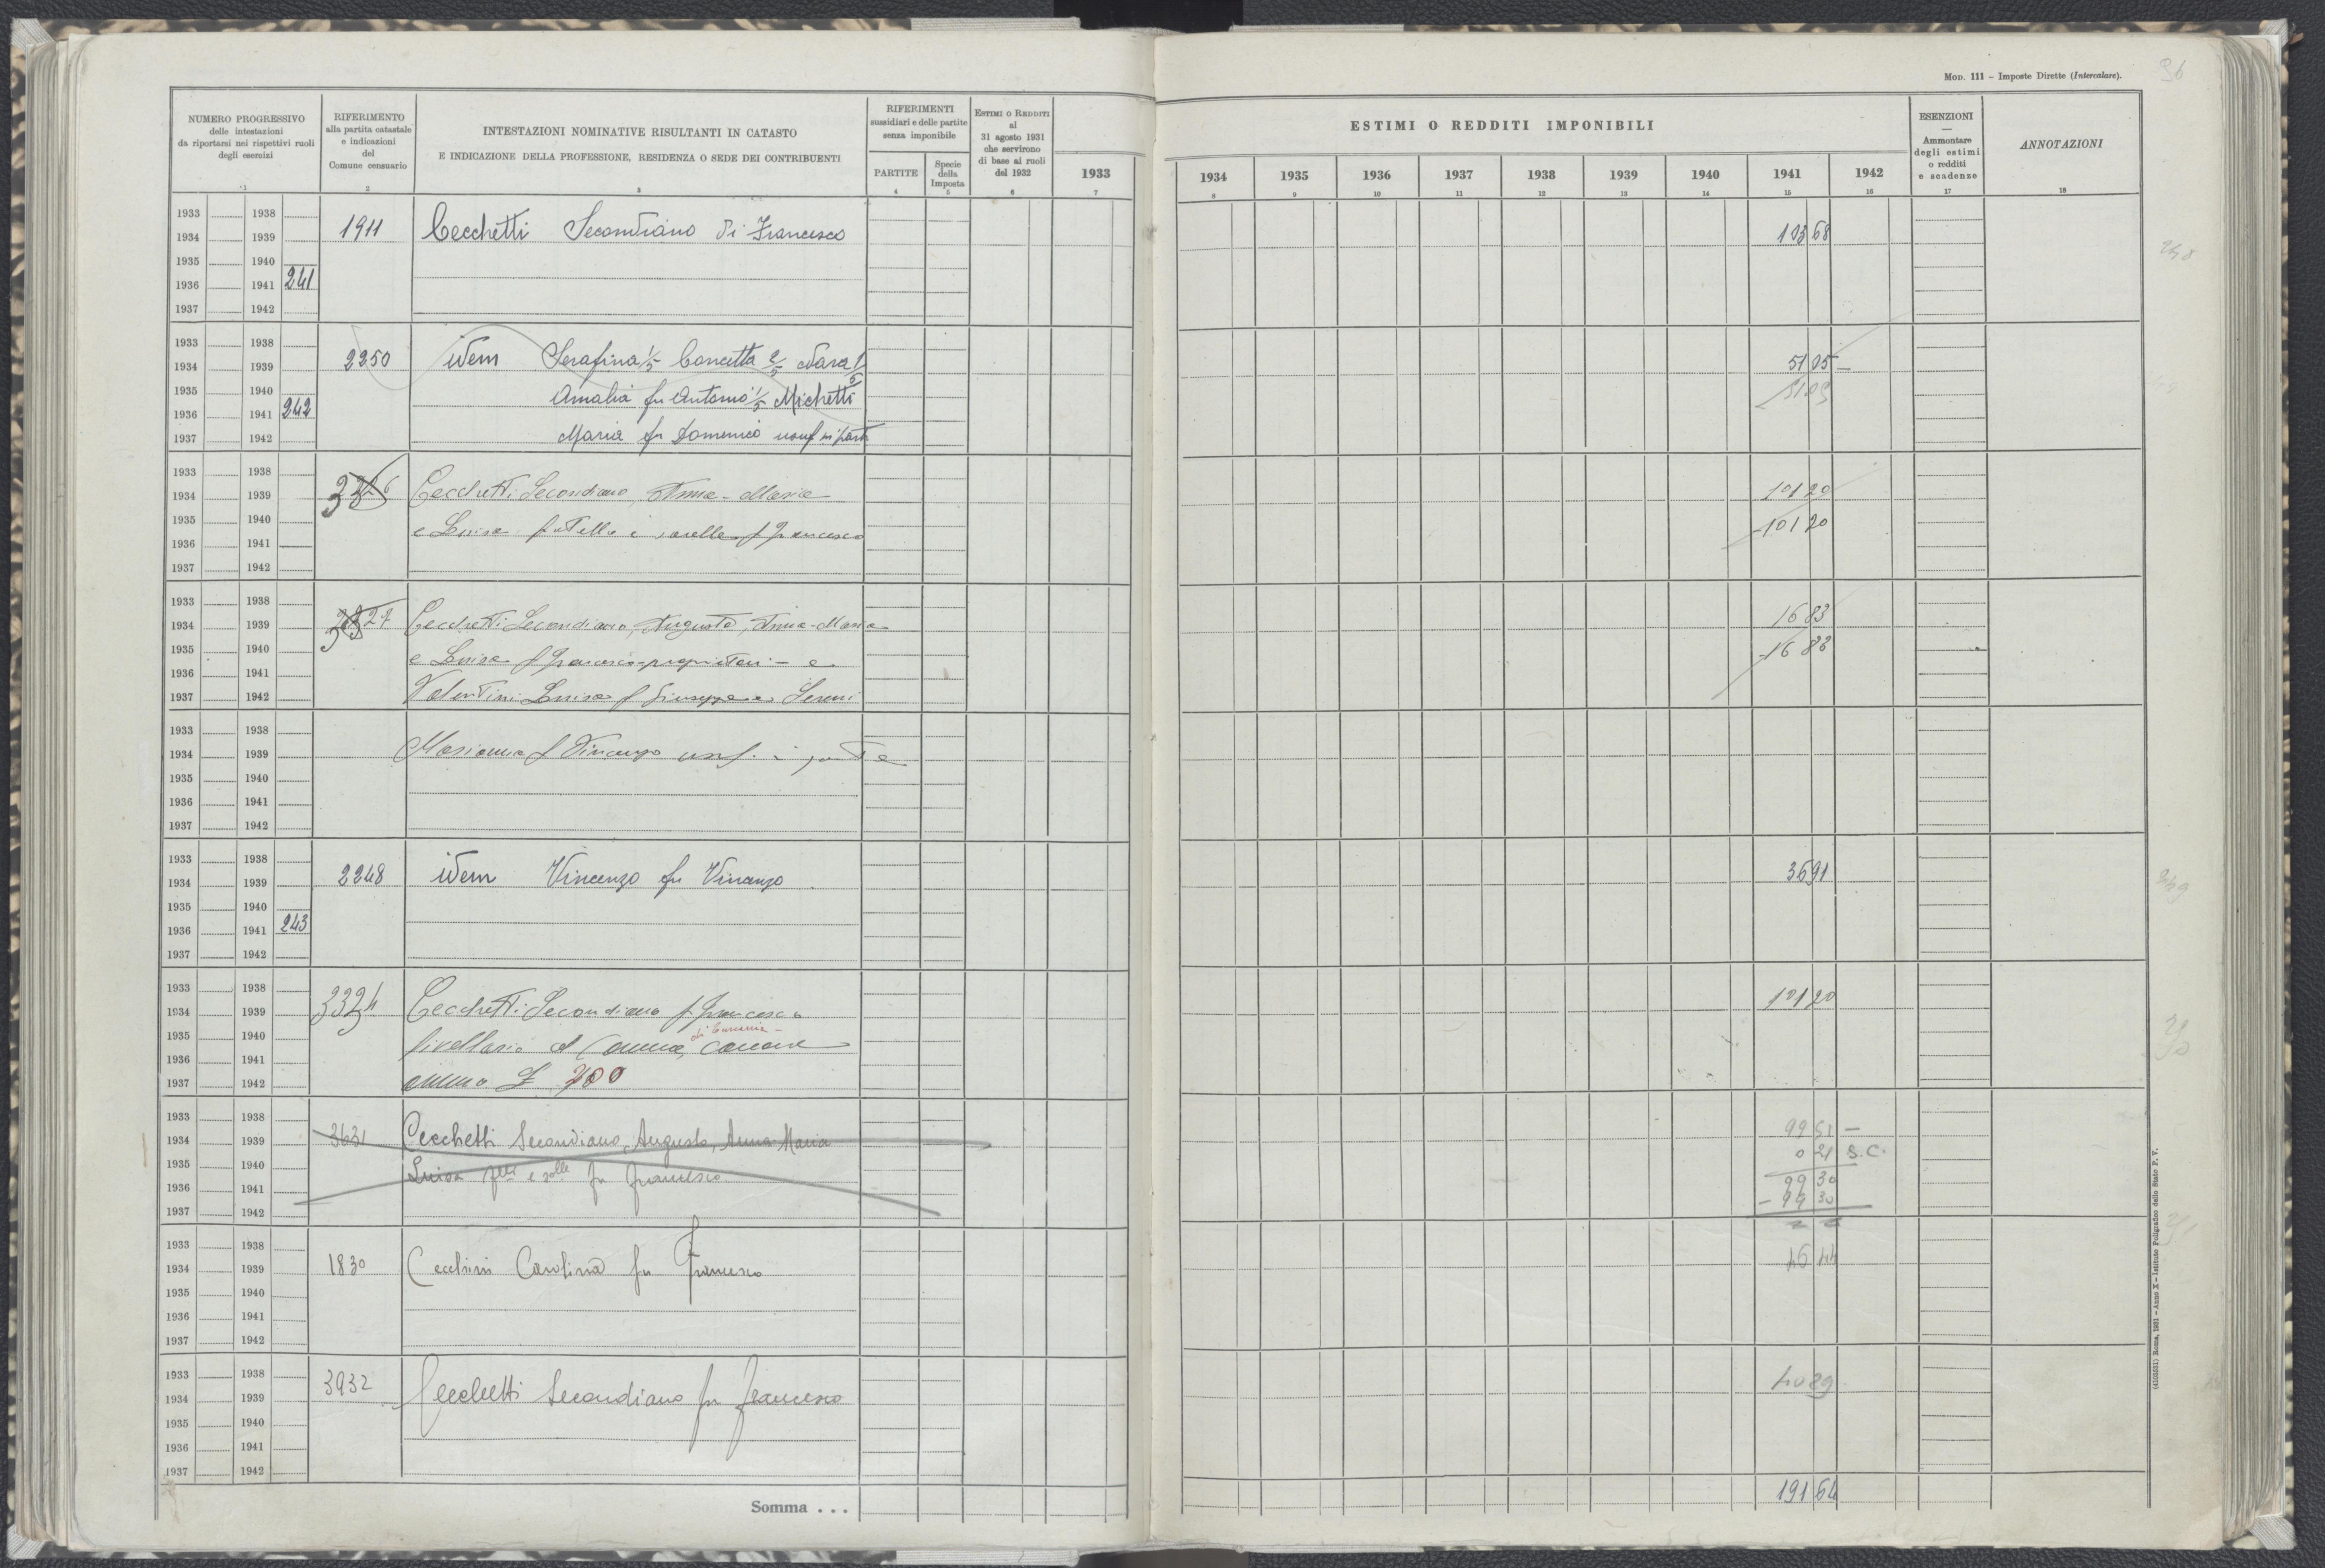 Mod. 111 – Imposte Dirette (Intercalare).
96
NUMERO PROGRESSIVO
delle intestazioni
da riportarsi nei rispettivi ruoli
degli esercizi
1
RIFERIMENTO
alla partita catastale
e indicazioni
del
Comune censuario
2
INTESTAZIONI NOMINATIVE RISULTANTI IN CATASTO
E INDICAZIONE DELLA PROFESSIONE, RESIDENZA O SEDE DEI CONTRIBUENTI
3
RIFERIMENTI
sussidiari e delle partite
senza imponibile
PARTITE
4
Specie
della
Imposta
5
Estimi o Redditi
al
31 agosto 1931
che servirono
di base ai ruoli
del 1932
6
1933
7
ESTIMI O REDDITI IMPONIBILI
1934 1935 1936 1937 1938 1939 1940 1941 1942
8 9 10 11 12 13 14 15 16
ESENZIONI
—
Ammontare
degli estimi
o redditi
e scadenze
17
ANNOTAZIONI
18
1933 1938
1934 1939 1911 Cecchetti Secondiano di Francesco 103 68
1935 1940
1936 1941 241
1937 1942
1933 1938
1934 1939 2250 idem Serafina 1/5 Concetta 2/5 Nara 1/5 51 05 –
1935 1940 Amalia fu Antonio 1/5 Michetti 51 05
1936 1941 242
1937 1942 Maria fu Domenico usuf in parte
1933 1938
1934 1939 3326 Cecchetti Secondiano, Anna-Maria 101 20
1935 1940 e Luisa fratello e sorelle f Francesco -101 20
1936 1941
1937 1942
1933 1938
1934 1939 Cecchetti Secondiano, Augusto, Anna-Maria 16 83
1935 1940 e Luisa f Francesco-proprietari – e -16 83
1936 1941
1937 1942 Valentini Luisa f Giuseppe e Sereni
1933 1938
1934 1939 Marianna f Vincenzo usuf. in parte
1935 1940
1936 1941
1937 1942
1933 1938
1934 1939 2248 idem Vincenzo fu Vincenzo 36 91
1935 1940
1936 1941 243
1937 1942
1933 1938
1934 1939 3324 Cecchetti Secondiano f Francesco 101 20
1935 1940 livellario al Comune, canone
1936 1941
1937 1942 annuo £ 700
1933 1938
1934 1939 3631 Cecchetti Secondiano, Augusto, Anna Maria 99 51 –
0 21 S.C.
1935 1940 Luisa flli e slle fu Francesco.
1936 1941 99 30
1937 1942 – 99 30
1933 1938
1934 1939 1830 Cecchini Carolina fu Francesco 46 44
1935 1940
1936 1941
1937 1942
1933 1938
1934 1939 3932 Cecchetti Secondiano fu Francesco 40 89
1935 1940
1936 1941
1937 1942
Somma . . . 191 64
(4103431) Roma, 1931 – Anno X – Istituto Poligrafico dello Stato P. V.